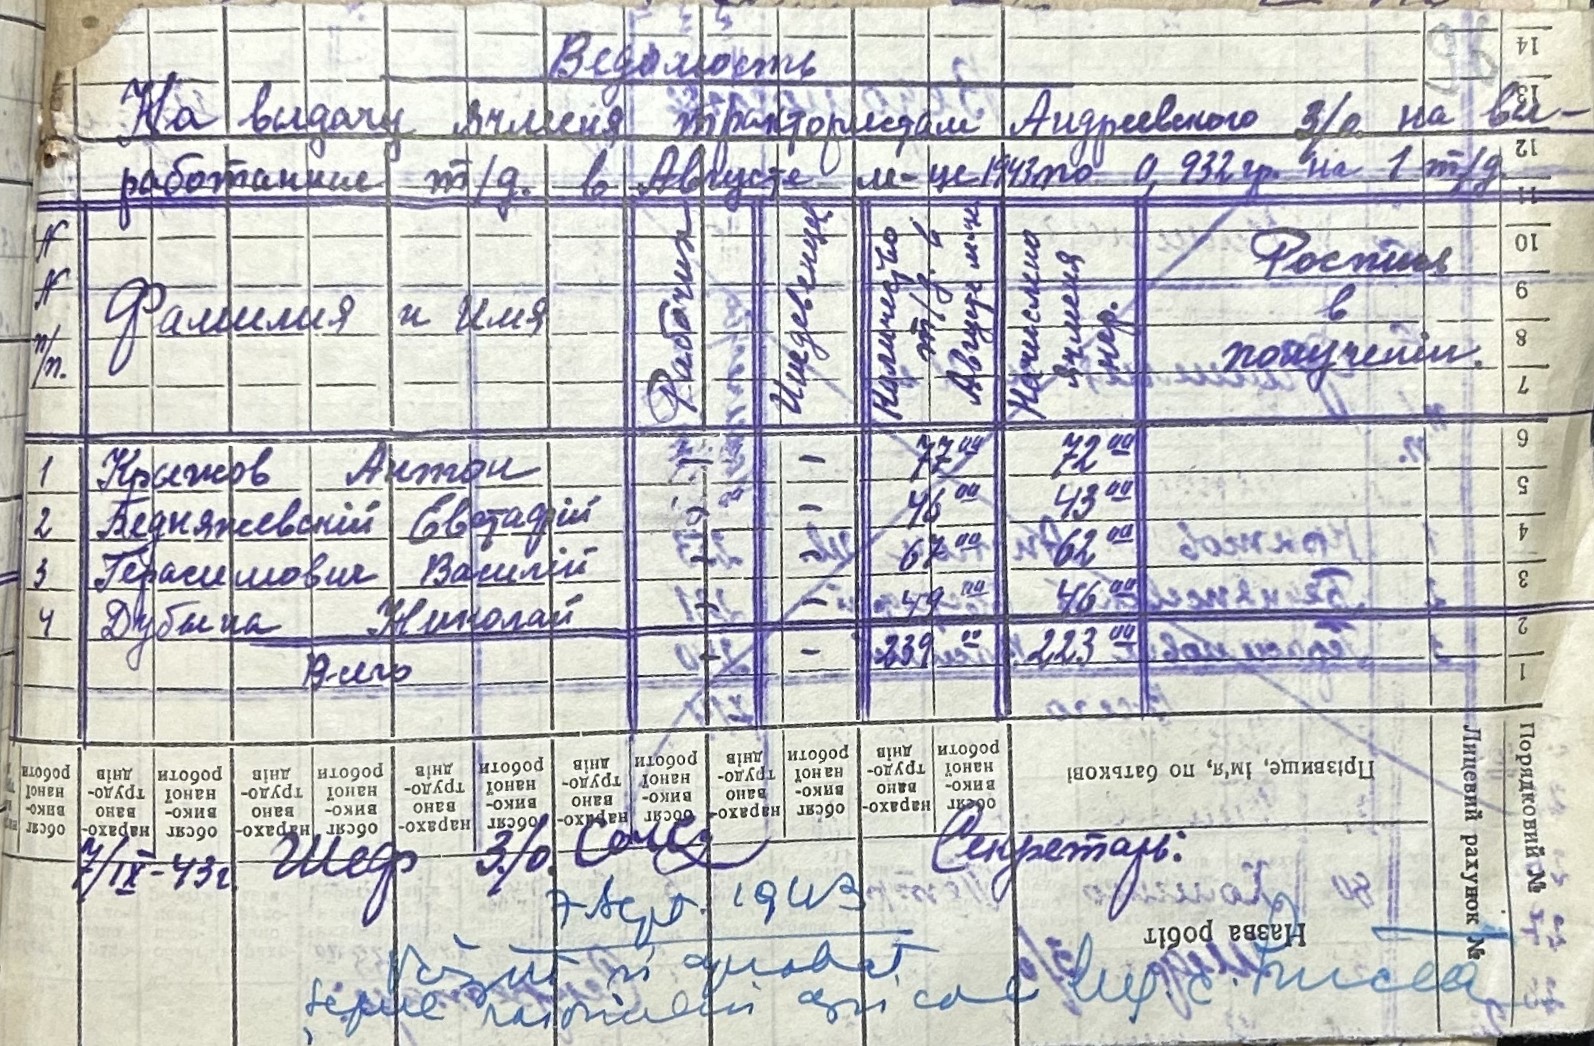 Ведомость
На выдачу ячменя трактористам Андреевского З/о на вы-
работанные т/д. в Августе м-це 1943 по 0,932 гр. на 1 т/д.
N N п/п.
Фамилия и Имя
Рабочих
Иждевенцев
Количество т/д. в Августе м-це
Начислено ячменя кгр.
Роспись в получении.
1 Крыжов Антон - - 77 00 72 00
2 Бедняжевскій Евстафій - - 46 00 43 00
3 Герасимович Василій - - 67 00 62 00
4 Дубына Николай - - 49 00 46 00
Всего - - 239 00 223 00
7/IX-43г. Шеф З/о.
Секретарь:
7 Sept. 1943
14
13
12
11
10
9
8
7
6
5
4
3
2
1
Порядковий №
Лицевий рахунок №
Прізвище, ім'я, по батькові
Назва робіт
обсяг виконаної роботи
нараховано трудоднів
обсяг виконаної роботи
нараховано трудоднів
обсяг виконаної роботи
нараховано трудоднів
обсяг виконаної роботи
нараховано трудоднів
обсяг виконаної роботи
нараховано трудоднів
обсяг виконаної роботи
нараховано трудоднів
обсяг виконаної роботи